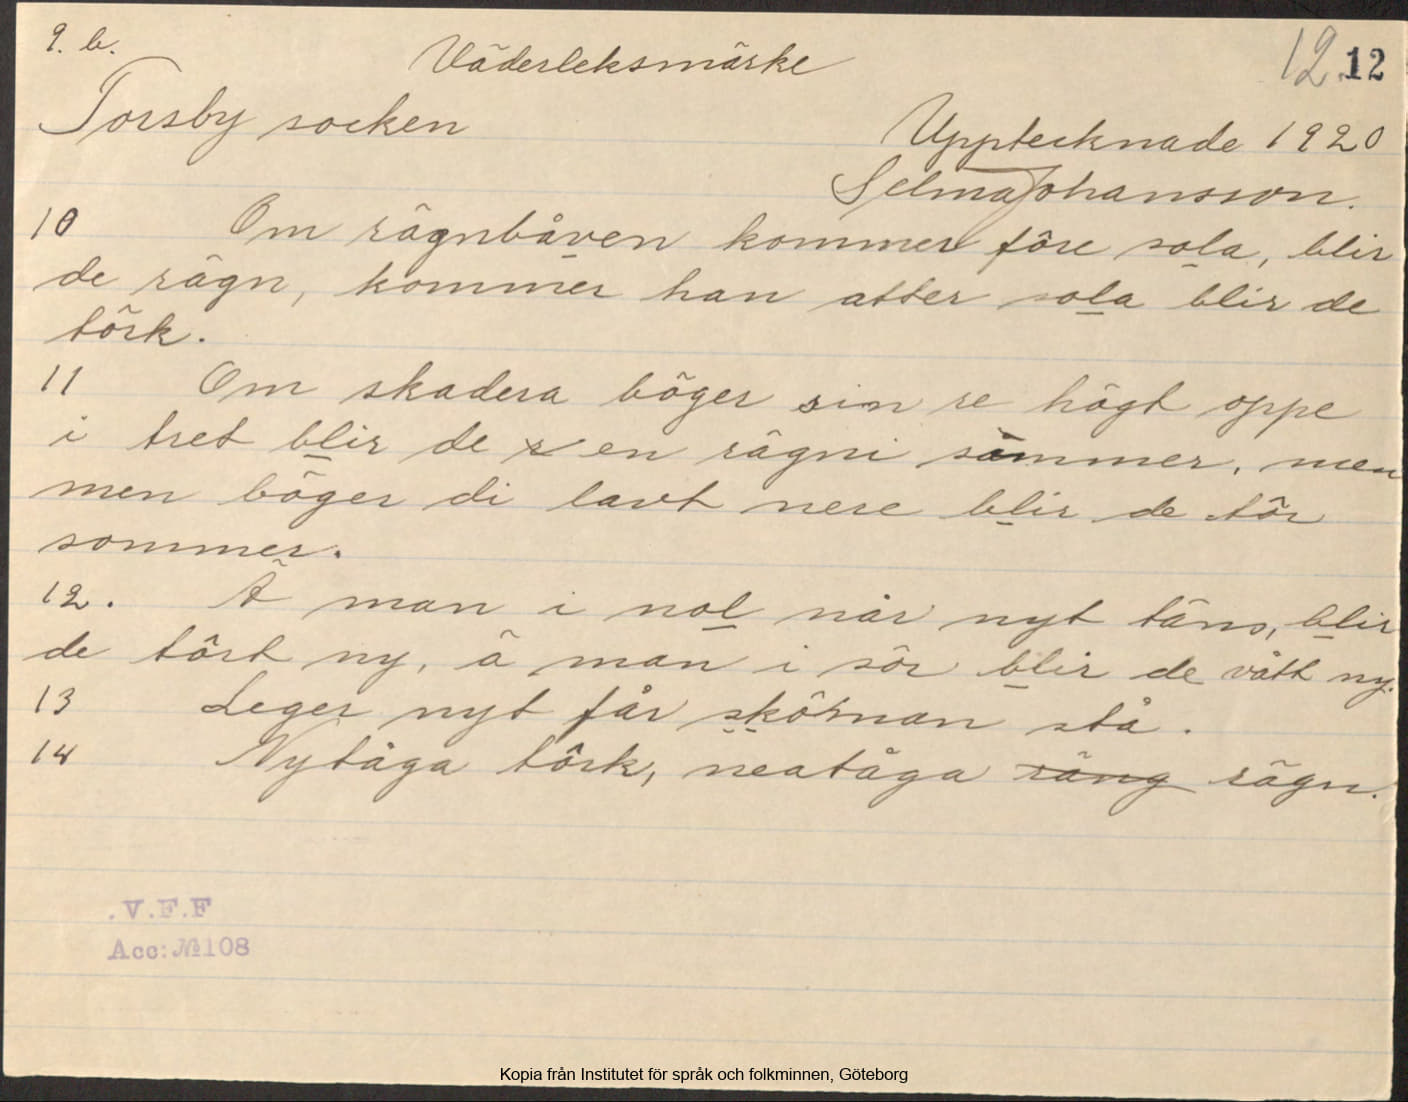 9. b.
Väderleksmärke
12. 12
Torsby socken
Upptecknade 1920
Selma Johansson.
10 Om rägnbåven kommer före sola, blir
de rägn, kommer han atter sola blir de
törk.
11 Om skadera böger sin re högt oppe
i tret blir de en rägni sommer, men
men böger di lavt nere blir de tör
sommer.
12. Ä man i nol når nyt täns, blir
de tört ny, ä man i sör blir de vått ny.
13 Leger nyt får skönnan stå.
14 Nytåga törk, neatåga räng rägn.
.V.F.F
Acc: № 108
Kopia från Institutet för språk och folkminnen, Göteborg